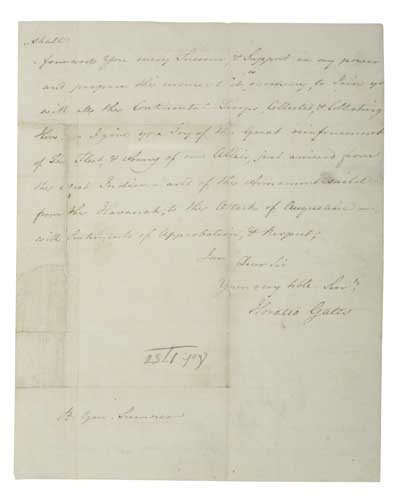 shall
forward you every Succour, & Support in my power
and propose the moment it is necessary, to Join you
with all the Continental Troops, Collected, & Collecting
Here. I give you Joy of the Great reinforcement
of the Fleet, & Army of our Allies, just arrived from
the West Indies and of the Armament sailed
from the Havanah, to the Attack of Augustine
with Sentiments of Approbation, & Respect;
I am Dear Sir
Your very Hble Serv't
Horatio Gates
B. Gen.